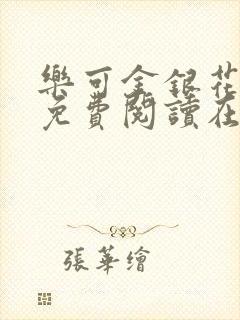 樂可金銀花
免費閱讀在
張華繪